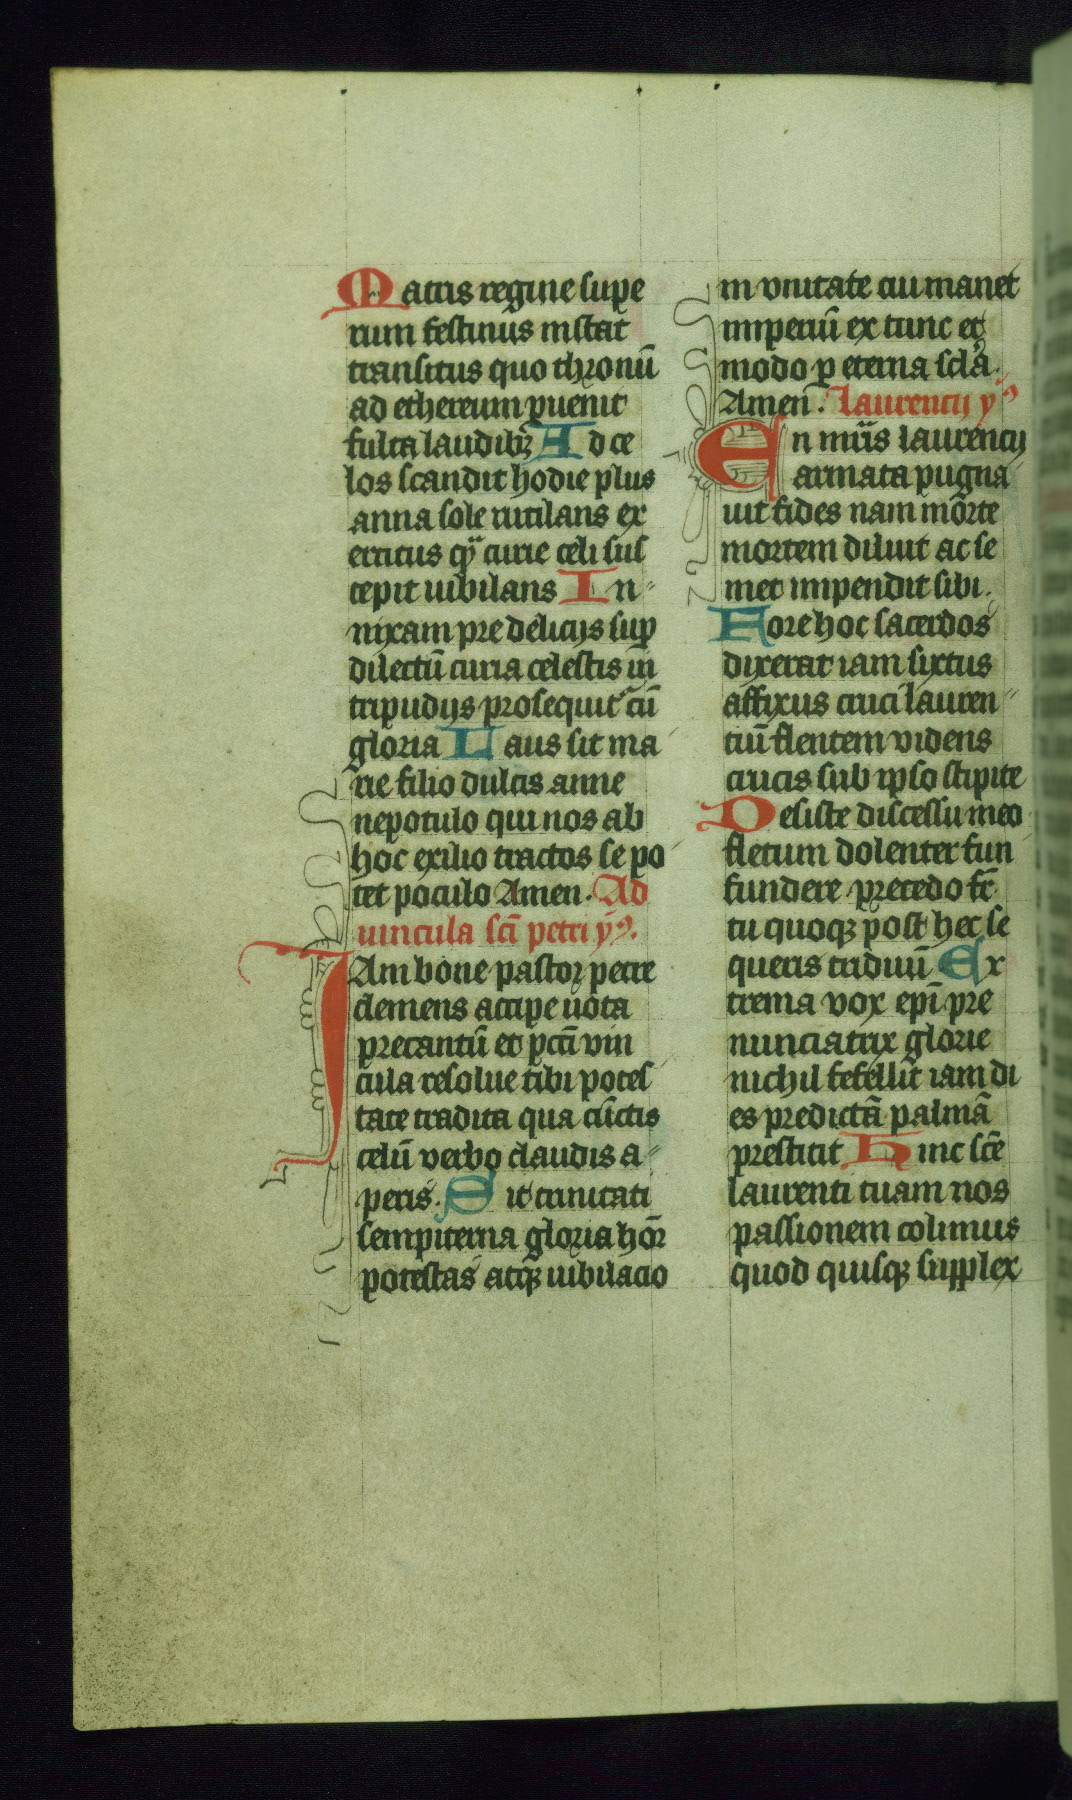 Matris regine supe
rum festinus instat
transitus quo thronū
ad ethereum ꝑuenit
fulta laudibꝫ Ad ce
los scandit hodie plus
anna sole rutilans ex
ercitus qͥ curie celi sus
cepit iubilans In-
nixam pre delicijs suꝑ
dilectū curia celestis in
tripudijs prosequit᷑ cū
gloria Laus sit ma
rie filio dulcis anne
nepotulo qui nos ab
hoc exilio tractos se po
tet poculo Amen. Ad
uincula scī petri yꝰ.
IAm bone pastor petre
clemens accipe uota
precantū et pctī vin
cula resolue tibi potes
tate tradita qua cūctis
celū verbo claudis a-
peris. Sit trinitati
sempiterna gloria hōr
potestas atqꝫ iubilacio
in vnitate cui manet
imperiū ex tunc et
modo ꝑ eterna scła.
Amen. Laurencij yꝰ
En mr̄is laurencij
armata pugna
uit fides nam morte
mortem diluit ac se
met impendit sibi.
Fore hoc sacerdos
dixerat iam sixtus
affixus cruci lauren-
ciū flentem videns
crucis sub ipso stipite
Desiste discessu meo
fletum dolenter fun
fundere precedo fr̄
tu quoqꝫ post hec se
queris triduū Ex
trema vox epī pre
nunciatrix glorie
nichil fefellit iam di
es predictā palmā
prestitit Hinc scē
laurenti tuam nos
passionem colimus
quod quisqꝫ supplex